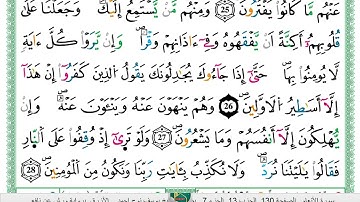 عَنْهُم مَّا كَانُوا۟ يَفْتَرُونَۖ 25 وَمِنْهُم مَّنْ يَّسْتَمِعُ إِلَيْكَۖ وَجَعَلْنَا عَلَىٰ
قُلُوبِهِمُۥٓ أَكِنَّةً أَنْ يَّفْقَهُوهُ وَفِےٓ ءَاذَانِهِمْ وَقْراًۖ وَإِنْ يَّرَوْا۟ كُلَّ ءَايَةٍ
لَّا يُومِنُوا۟ بِهَاۖ حَتَّىٰٓ إِذَا جَآءُوكَ يُجَٰدِلُونَكَ يَقُولُ اُ۬لذِينَ كَفَرُوٓا۟ إِنْ هَٰذَآ
إِلَّآ أَسَٰطِيرُ اُ۬لَاوَّلِينَۖ 26 وَهُمْ يَنْهَوْنَ عَنْهُ وَيَنْـَٔوْنَ عَنْهُۖ وَإِنْ
يُّهْلِكُونَ إِلَّآ أَنفُسَهُمْ وَمَا يَشْعُرُونَۖ 27 وَلَوْ تَر۪ىٰٓ إِذْ وُقِفُوا۟ عَلَى اَ۬لنّ۪ارِ
فَقَالُوا۟ يَٰلَيْتَنَا نُرَدُّ وَلَا نُكَذِّبُ بِـَٔايَٰتِ رَبِّنَا وَنَكُونُ مِنَ اَ۬لْمُومِنِينَۖ 28
سورة الأنعام الصفحة 130 الحزب 13 الجزء 7